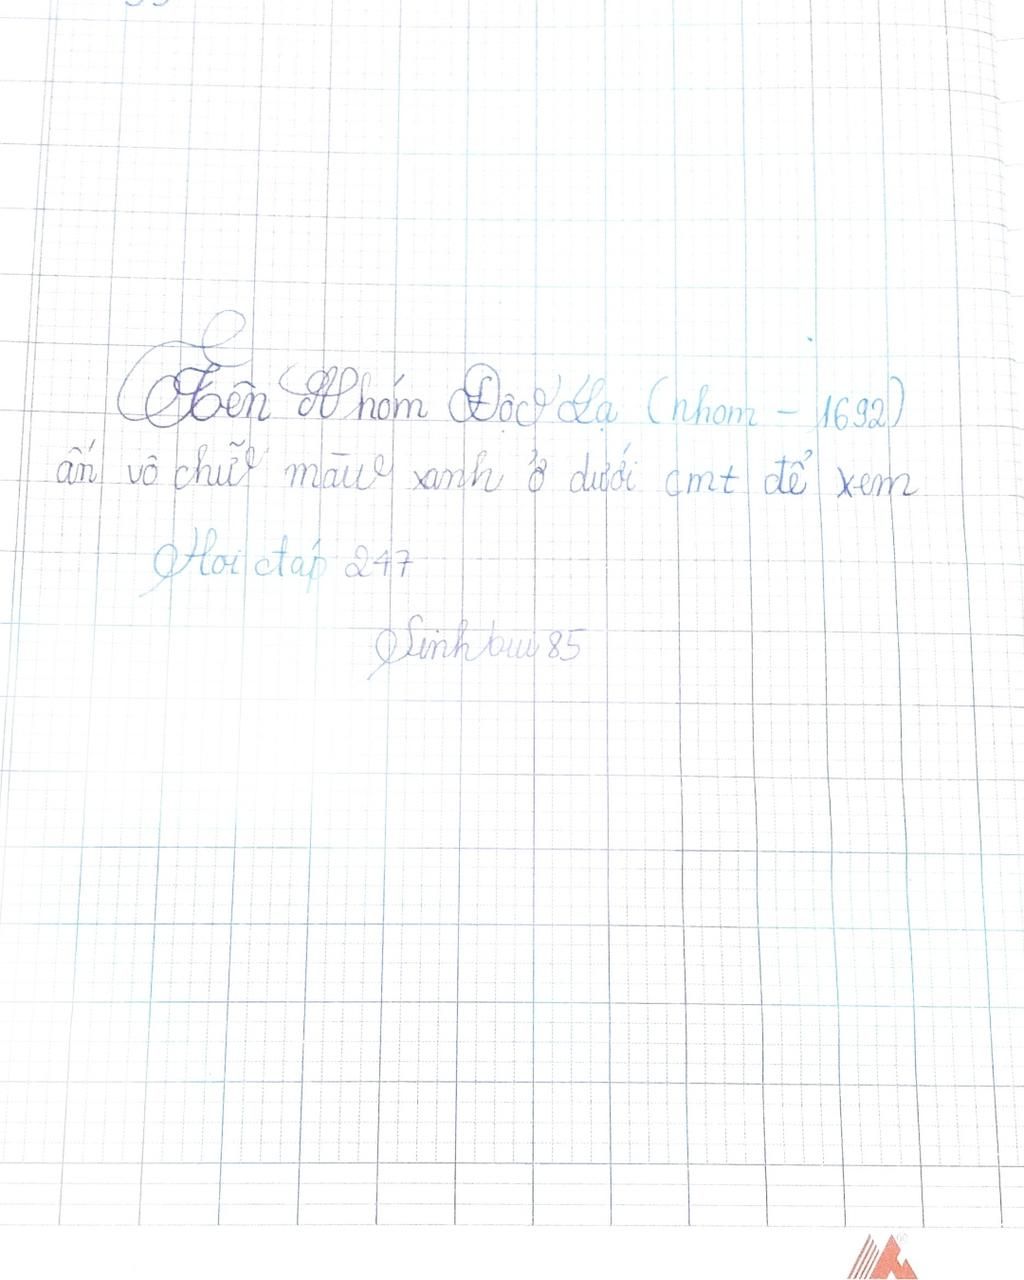 Tên Nhóm Độc Lạ (nhom - 1692)
ấn vô chữ màu xanh ở dưới cmt để xem
Hoi đap 247
Sinh bui 85